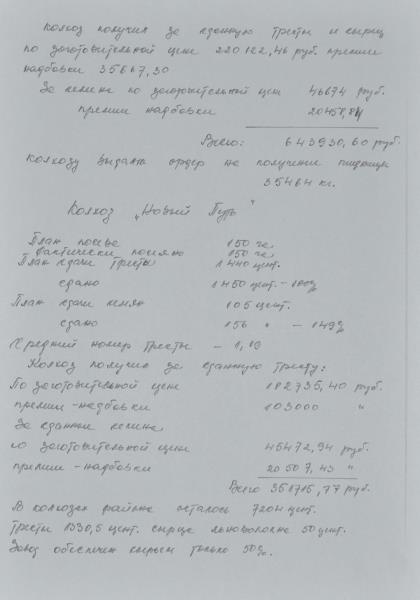 Колхоз получил за сданную тресты и сырец
по заготовительной цене 220122,46 руб. премии
надбавки 35667,30
За семена по заготовительной цен 46674 руб.
премии надбавки 20458,84
Всего: 643930,60 рублей
Колхозу выдана ордер на получение пшеницы
35464 кг.
Колхоз „Новый Путь"
План посева 150 га
Фактически посеяно 150 га
План сдачи тресты 1440 цент.
сдано 1450 цент. - 100%
План сдачи семян 105 цент.
сдано 156 " - 149%
Средний номер тресты - 1,19
Колхоз получил за сданную тресту:
По заготовительной цене 182735,40 руб.
премии-надбавки 103000 "
За сданные семена
по заготовительной цене 45472,94 руб.
премии-надбавки 20507,43 "
Всего 351715,77 руб.
В колхозах района осталось 7204 цент.
тресты 1330,5 цент. сырца льноволокна 50 цент.
Завод обеспечен сырьем только 50%.